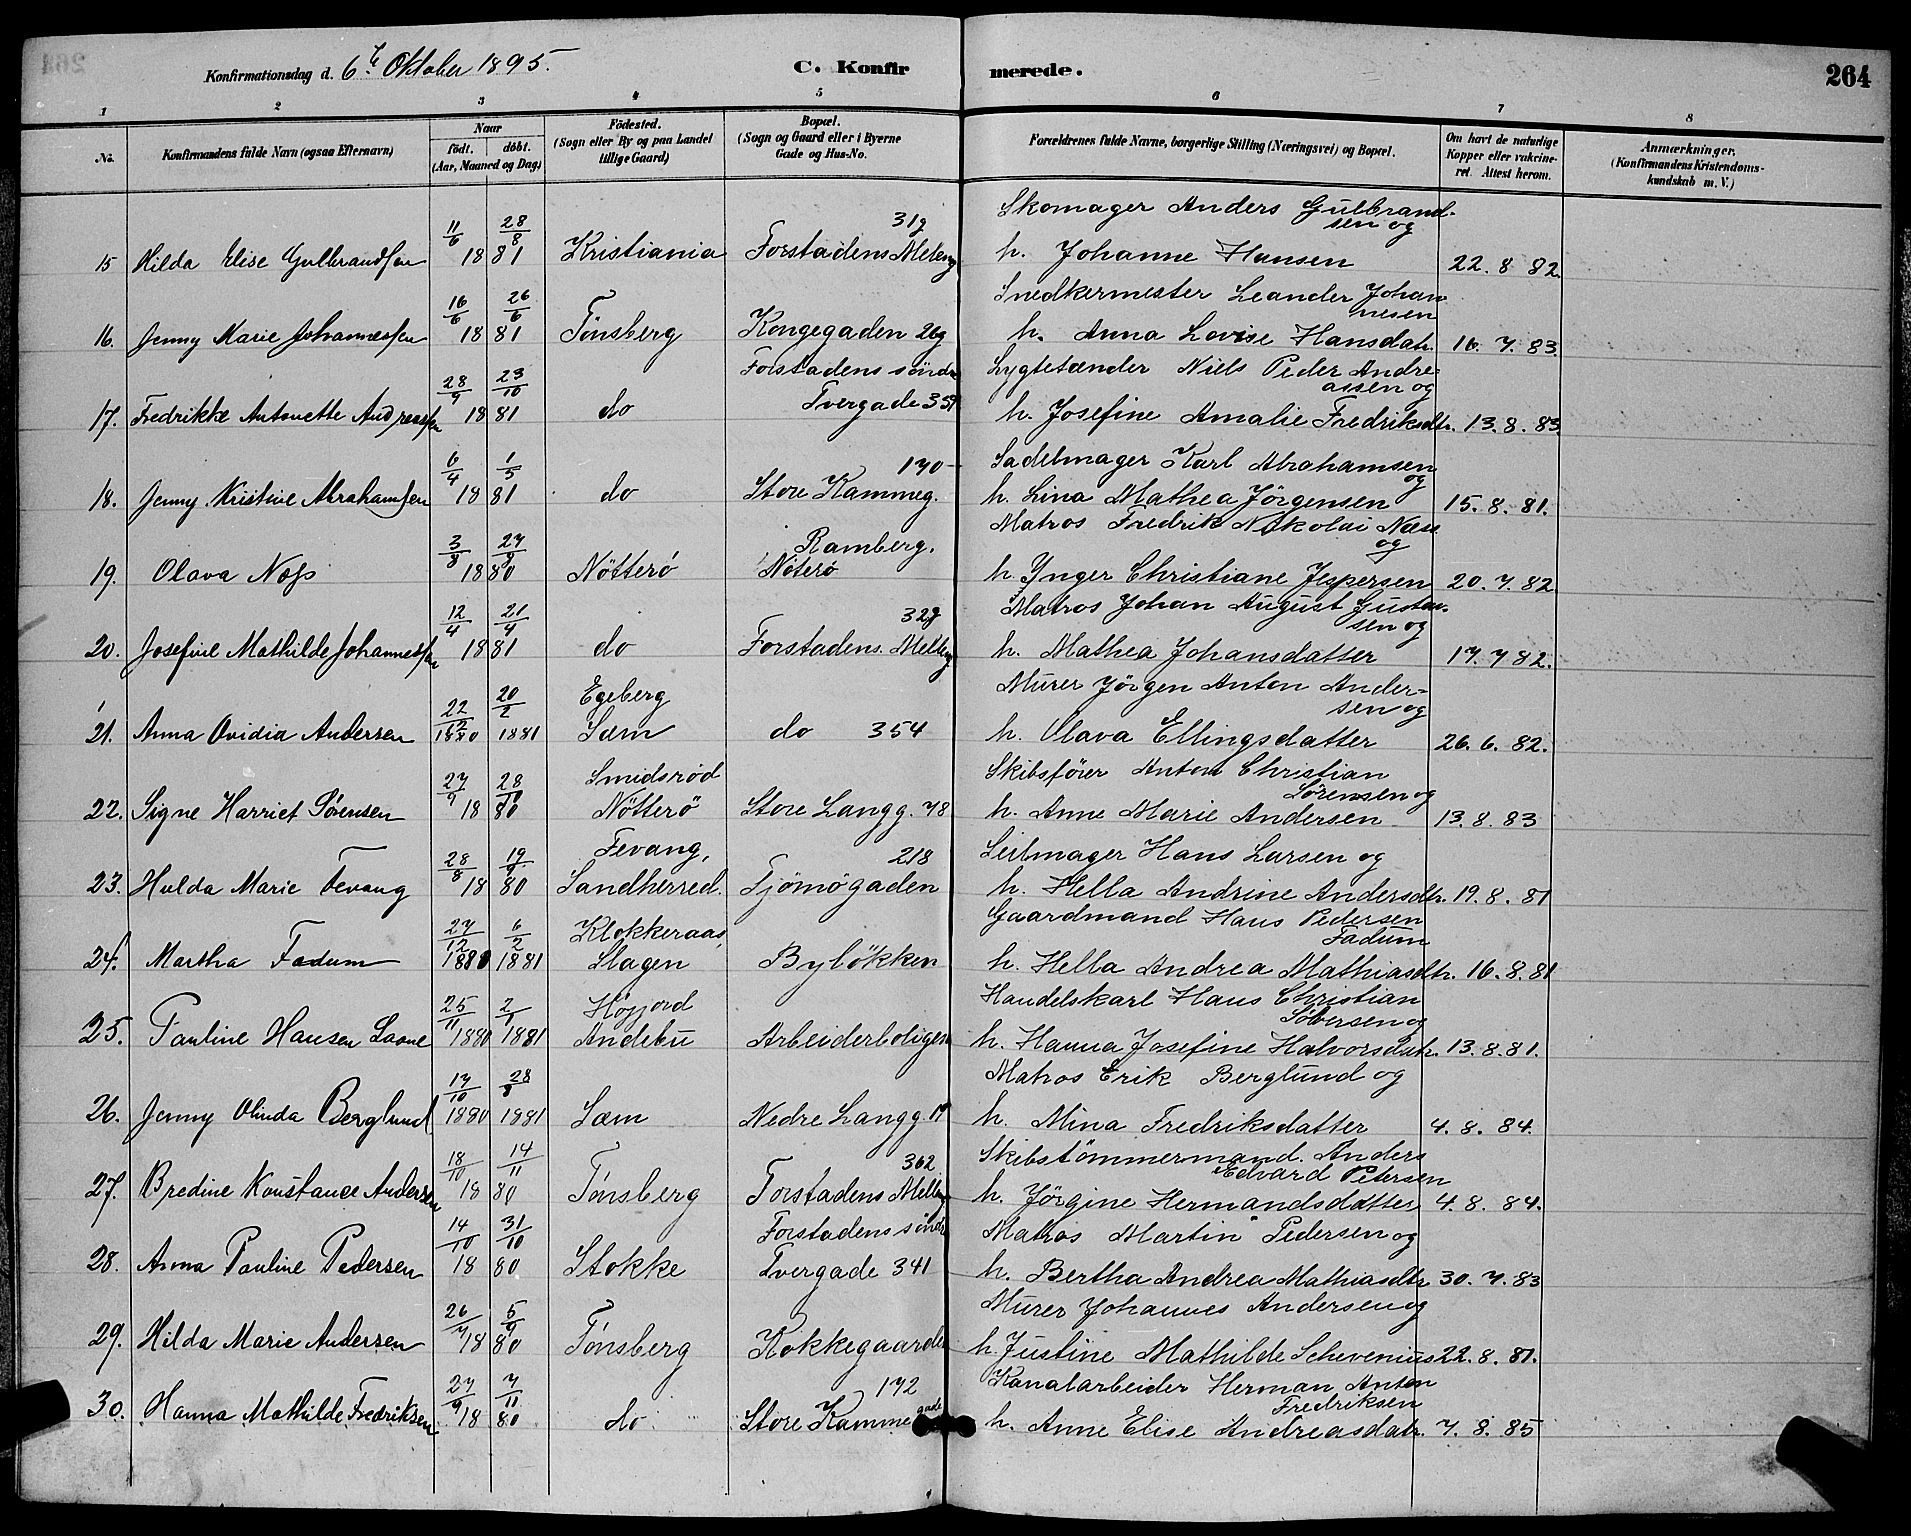 Konfirmationsdag d. 6te Oktober 1895.
C. Konfirmerede.
264
1 2 3 4 5 6 7 8
No.
Konfirmandens fulde Navn (ogsaa Efternavn)
Naar
födt. döbt.
(Aar, Maaned og Dag)
Födested.
(Sogn eller By og paa Landet
tillige Gaard)
Bopæl.
(Sogn og Gaard eller i Byerne
Gade og Hus-No.
Forældrenes fulde Navne, borgerlige Stilling (Næringsvei) og Bopæl.
Om havt de naturlige
Kopper eller vakcine-
ret. Attest herom.
Anmærkninger.
(Konfirmandens Kristendoms-
kundskab m. V.)
11/6 28/8 31g Skomager Anders Gulbrand-
sen og
15 Hilda Elise Gulbrandsen 18 81 Kristiania Forstadens Melleng h. Johanne Hansen 22. 8 82.
16/6 26/6 Snedkermester Leander Johan
nesen
16. Jenny Marie Johannessen 18 81 Tønsberg Kongegaden 26g h. Anna Lovise Hansdatr. 16. 7. 83.
28/9 23/10 Forstadens söndre Lygtetænder Niels Peder Andre=
assen og
17. Fredrikke Antonette Andreassen 18 81 do Tvergade 359 h. Josefine Amalie Fredriksdtr. 13. 8. 83.
6/4 1/5 170 Sadelmager Karl Abrahamsen
og
18. Jenny Kristine Abrahamsen 18 81 do Store Kammeg. h. Lina Mathea Jörgensen 15. 8. 81.
3/8 27/9 Ramberg. Matros Fredrik Nikolai Næss
og
19. Olava Næss 18 80 Nötterö Nöterö h Inger Christiane Jespersen 20. 7. 82.
12/4 21/4 32g Matros Johan August Gustav-
sen og
20. Josefine Mathilde Johannessen 18 81 do Forstadens Melleng h. Mathea Johansdatter 17. 7 82.
22/12 20/2 Egeberg Murer Jörgen Anton Ander=
sen og
21. Anna Ovidia Andersen 1880 1881 Sæm do 354 h. Olava Ellingsdatter 26. 6. 82.
27/9 28/11 Smidsröd Skibsförer Anton Christian
Sörensen og
22. Signe Harriet Sörensen 18 80 Nötterö Store Langg. 78 h. Anne Marie Andersen 13. 8. 83
28/8 19/9 Fevang, 218 Seilmager Hans Larsen og
23. Hulda Marie Fevang 18 80 Sandherred. Tjömögaden h. Hella Andrine Andersdtr. 19. 8. 81
27/12 6/2 Klokkeraas, Gaardmand Hans Pedersen
Fadum
24. Martha Fadum 1880 1881 Slagen Bylökken h. Hella Andrea Mathiasdtr. 16. 8. 81
25/11 2/1 Höjjord Handelskarl Hans Christian
Sölversen og
25. Pauline Hansen 1880 1881 Andebu Arbeiderboligen h. Hanna Josefine Halvorsdatr. 13. 8. 81.
17/10 28/8 Matros Erik Berglund og
26. Jenny Olinda Berglund 1880 1881 Sæm Nedre Langg. 19 h. Mina Fredriksdatter 4. 8. 84.
18/10 14/11 362 Skibstömmermand. Anders
Edvard Petersen
27. Bredine Konstance Andersen 18 80 Tönsberg Forstadens Melleng h. Jörgine Hermandsdatter 4. 8. 84.
14/10 31/10 Forstadens söndre Matros Martin Pedersen og
28. Anna Pauline Pedersen 18 80 Stokke Tvergade 341 h. Bertha Andrea Mathiasdtr. 30. 7. 83
26/7 5/9 Murer Johannes Andersen og
29. Hilda Marie Andersen 18 80 Tönsberg Kokkegaarden h. Justine Mathilde Schevenius 22. 8. 81.
27/9 7/11 172 Kanalarbeider Herman Anton
Fredriksen
30. Hanna Mathilde Fredriksen 18 80 do Store Kammegade h. Anne Elise Andreasdatr. 7. 8. 85